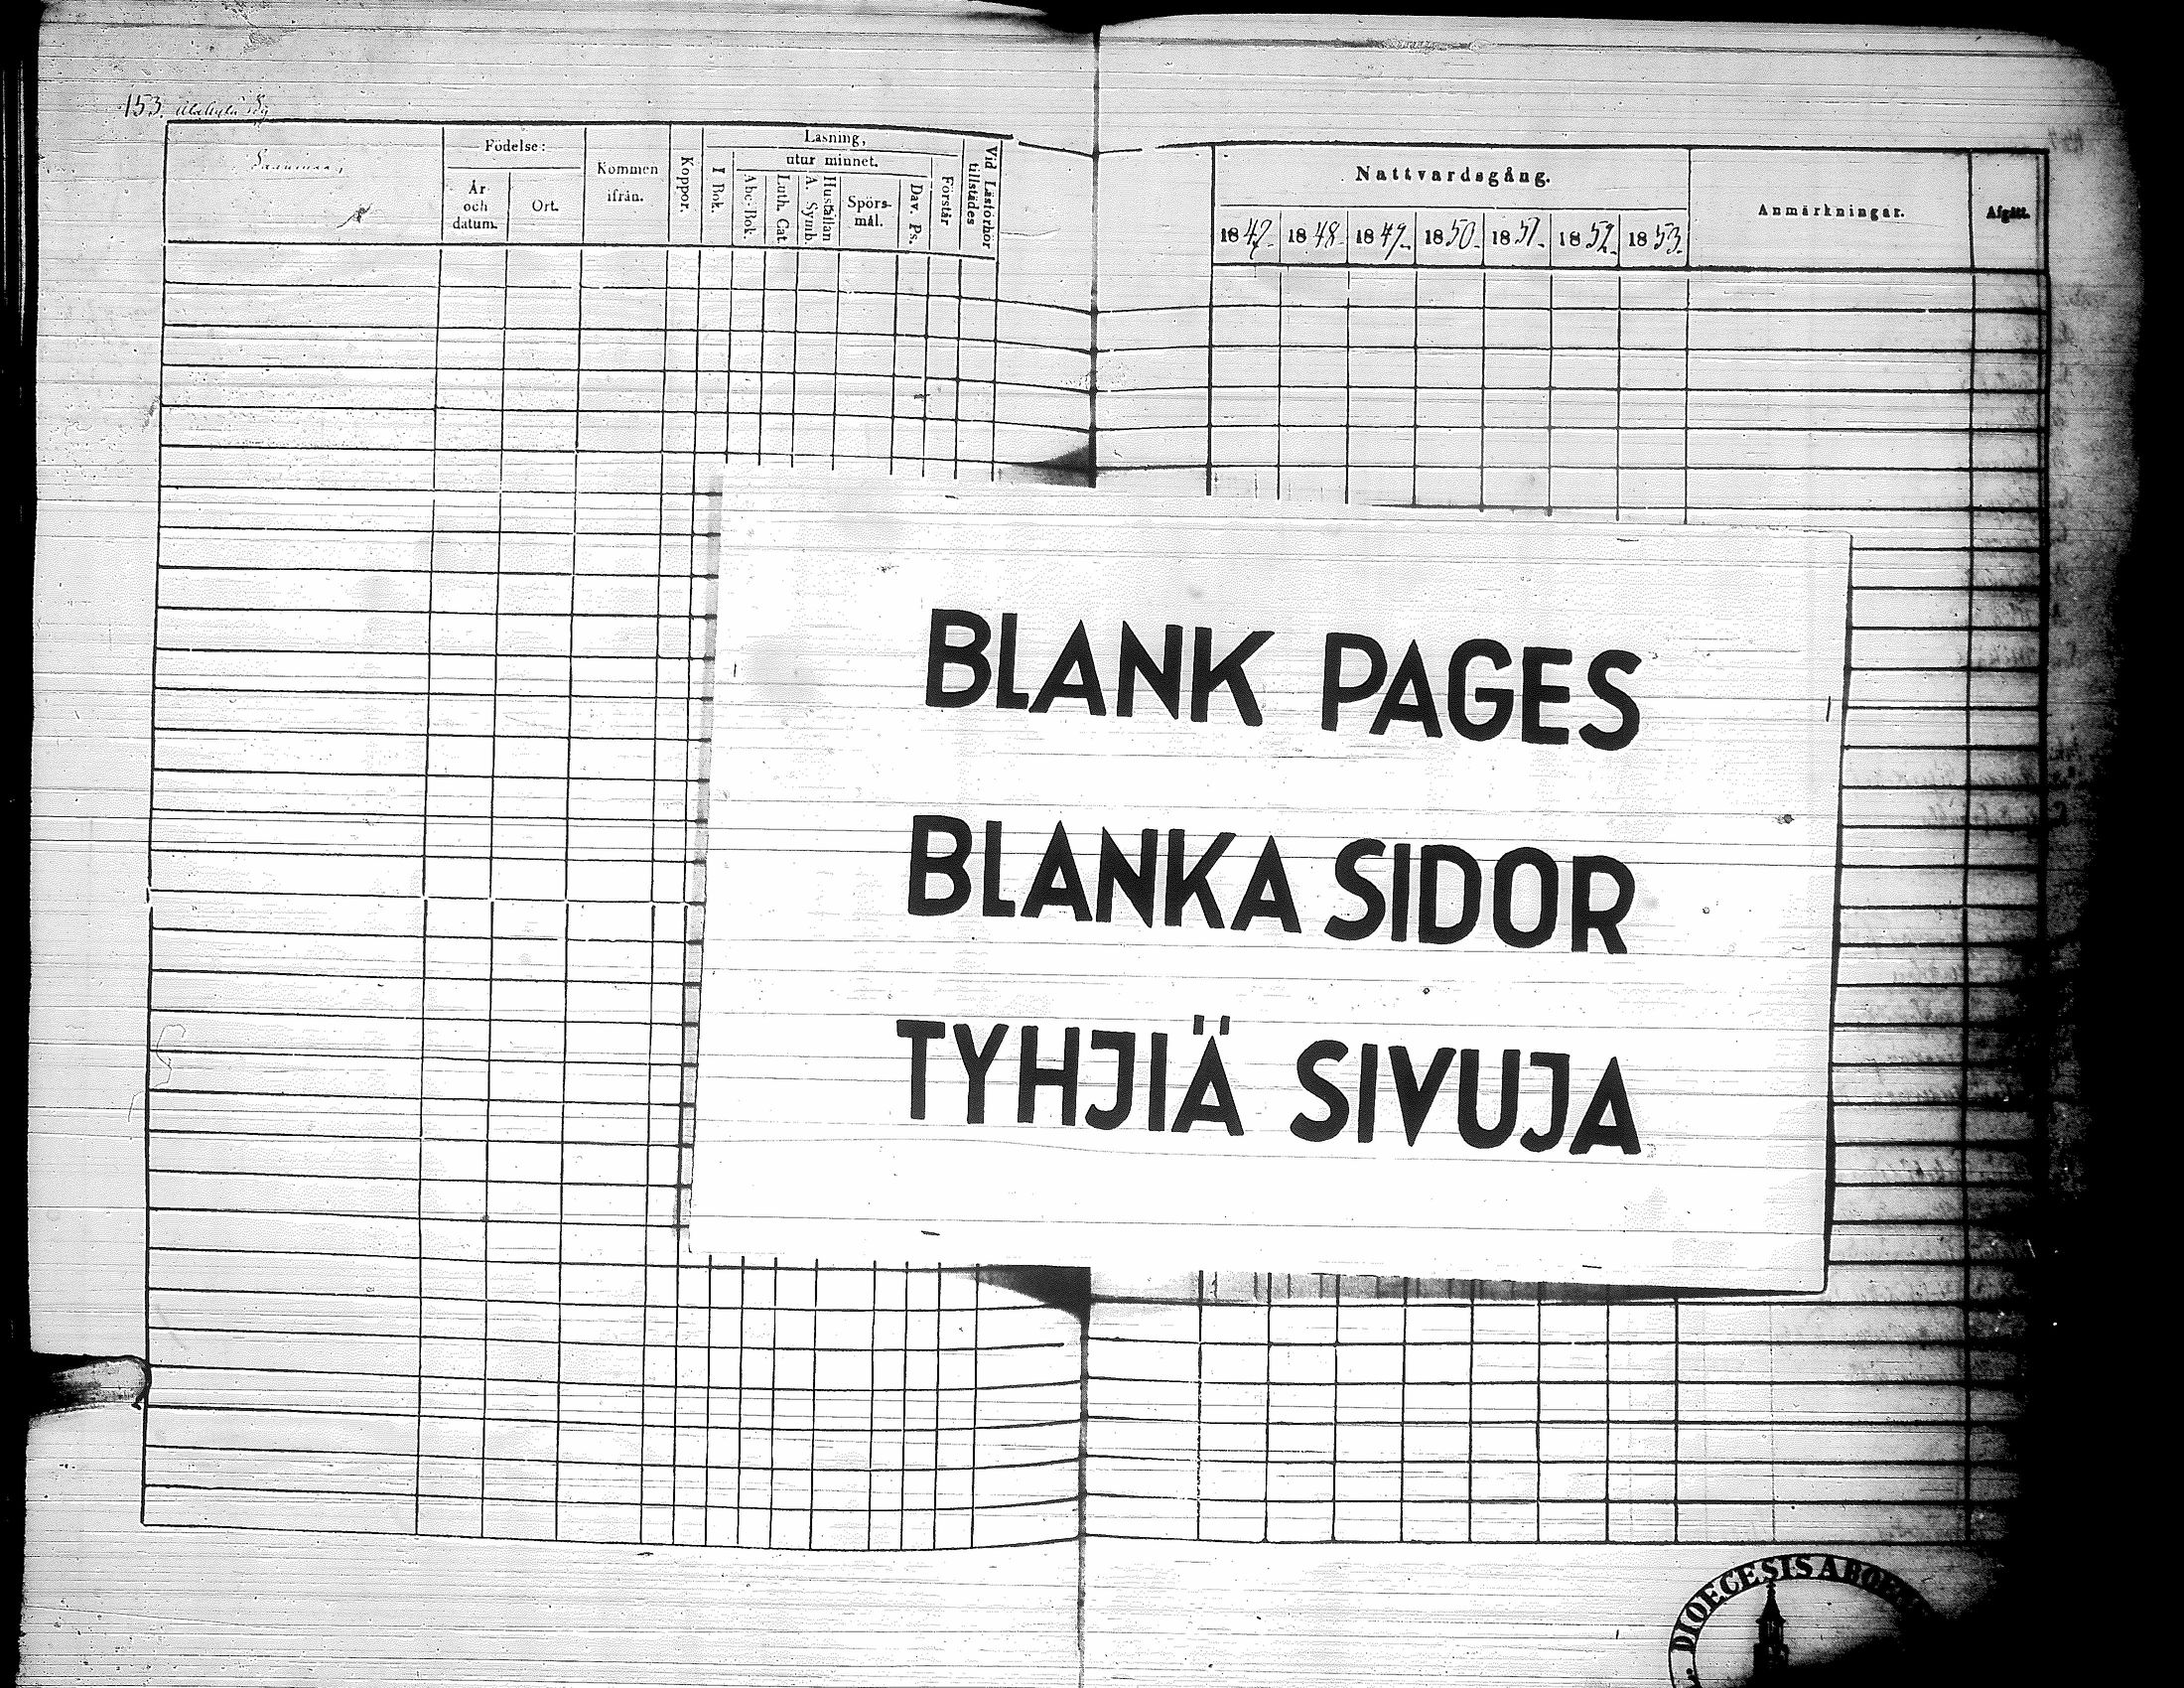 153.
Födelse:
År och datum.
Ort.
Kommen ifrån.
Koppor.
Läsning,
I Bok.
utur minnet.
Abc-Bok.
Luth. Cat.
Hustaflan
A. Symb.
Spörs-mål.
Dav. Ps.
Förstår
Vid Läsförhör tillstädes
Nattvardsgång.
1847. 1848. 1849. 1850. 1851. 1852. 1853.
Anmärkningar.
Afgått.
BLANK PAGES
BLANKA SIDOR
TYHJIÄ SIVUJA
DIOECESIS ABOEN